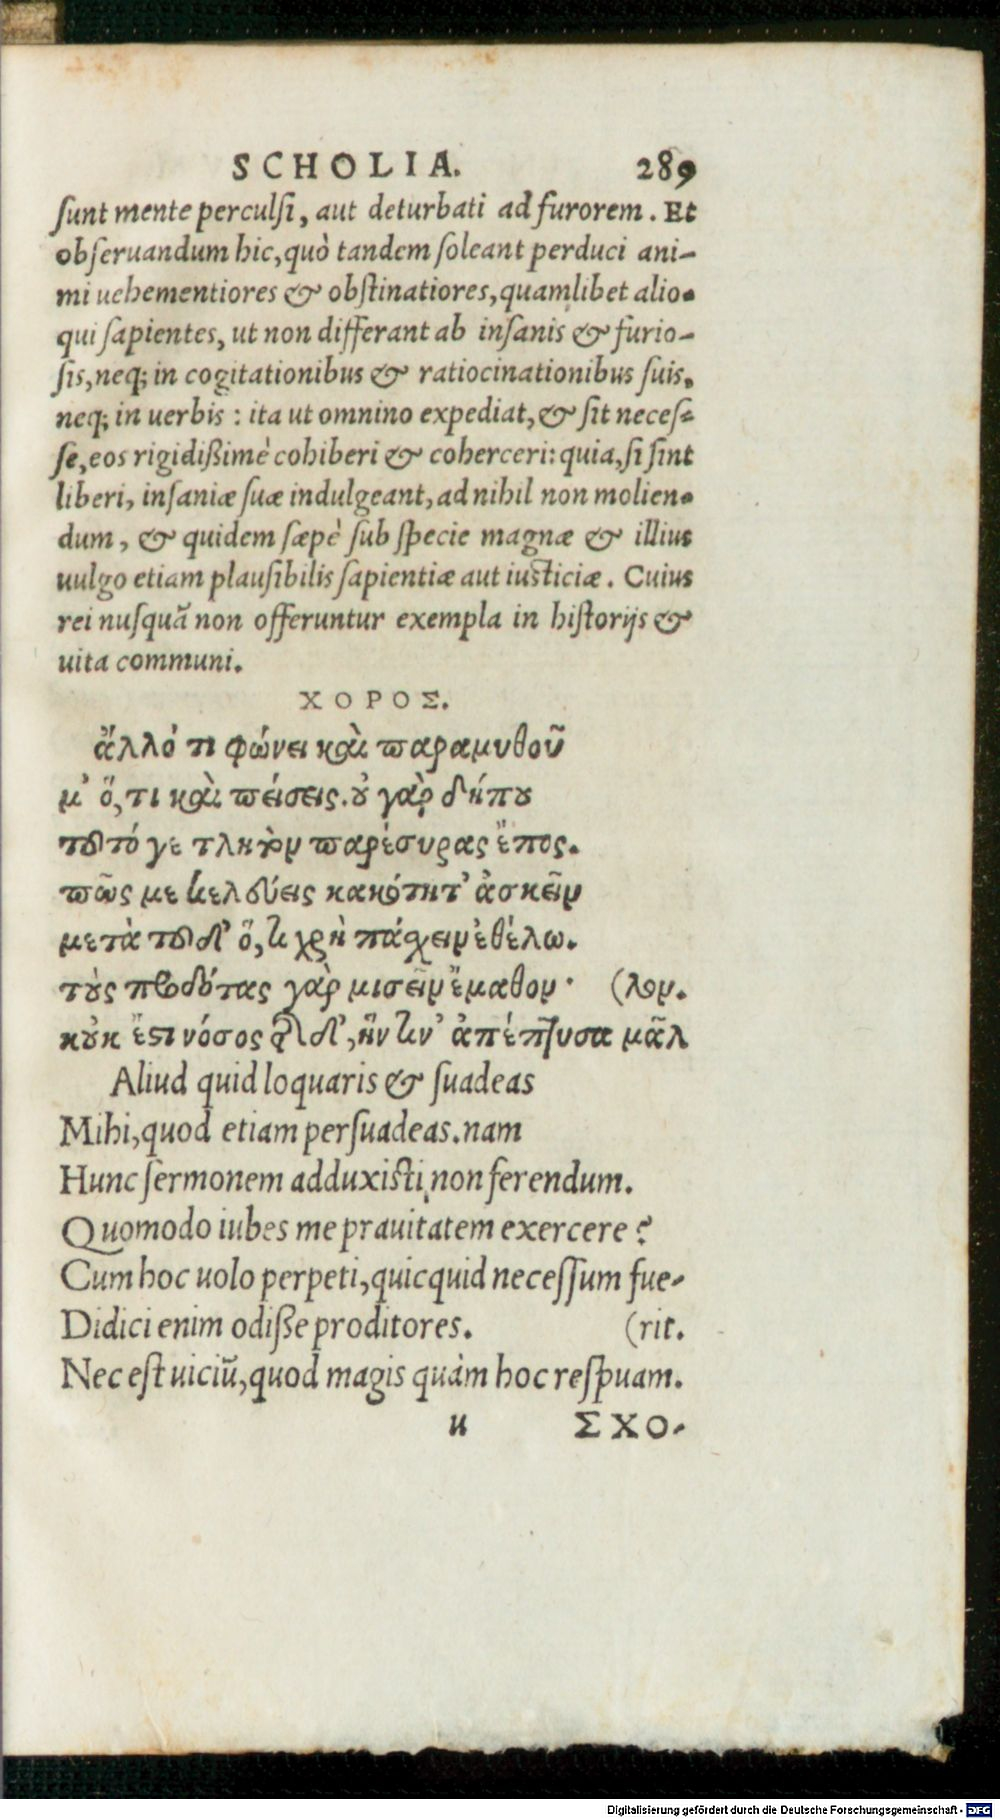 SCHOLIA. 289
sunt mente perculsi, aut deturbati ad furorem. Et
obseruandum hic, quò tandem soleant perduci ani-
mi uehementiores & obstinatiores, quamlibet alio-
qui sapientes, ut non differant ab insanis & furio-
sis, neq; in cogitationibus & ratiocinationibus suis,
neq; in uerbis: ita ut omnino expediat, & sit neces-
se, eos rigidißimè cohiberi & coherceri: quia, si sint
liberi, insaniæ suæ indulgeant, ad nihil non molien-
dum, & quidem sæpè sub specie magnæ & illius
uulgo etiam plausibilis sapientiæ aut iusticiæ. Cuius
rei nusquã non offeruntur exempla in historijs &
uita communi.
ΧΟΡΟΣ.
ἄλλό τι φώνει καὶ παραμυθοῦ
μ' ὅ, τι καὶ πείσεις. οὐ γὰρ δήπου
τοῦτό γε τλητὸν παρέσυρας ἔπος.
πῶς με κελεύεις κακότητ' ἀσκεῖν
μετὰ τοῦδ' ὅ, τι χρὴ πάσχειν ἐθέλω.
τοὺς προδότας γὰρ μισεῖν ἔμαθον· (λον.
κοὐκ ἔστι νόσος τῆσδ', ἥν τιν' ἀπέπτυσα μᾶλ
Aliud quid loquaris & suadeas
Mihi, quod etiam persuadeas. nam
Hunc sermonem adduxisti non ferendum.
Quomodo iubes me prauitatem exercere?
Cum hoc uolo perpeti, quicquid necessum fue-
Didici enim odiße proditores. (rit.
Nec est uiciũ, quod magis quàm hoc respuam.
u ΣΧΟ-
Digitalisierung gefördert durch die Deutsche Forschungsgemeinschaft - DFG